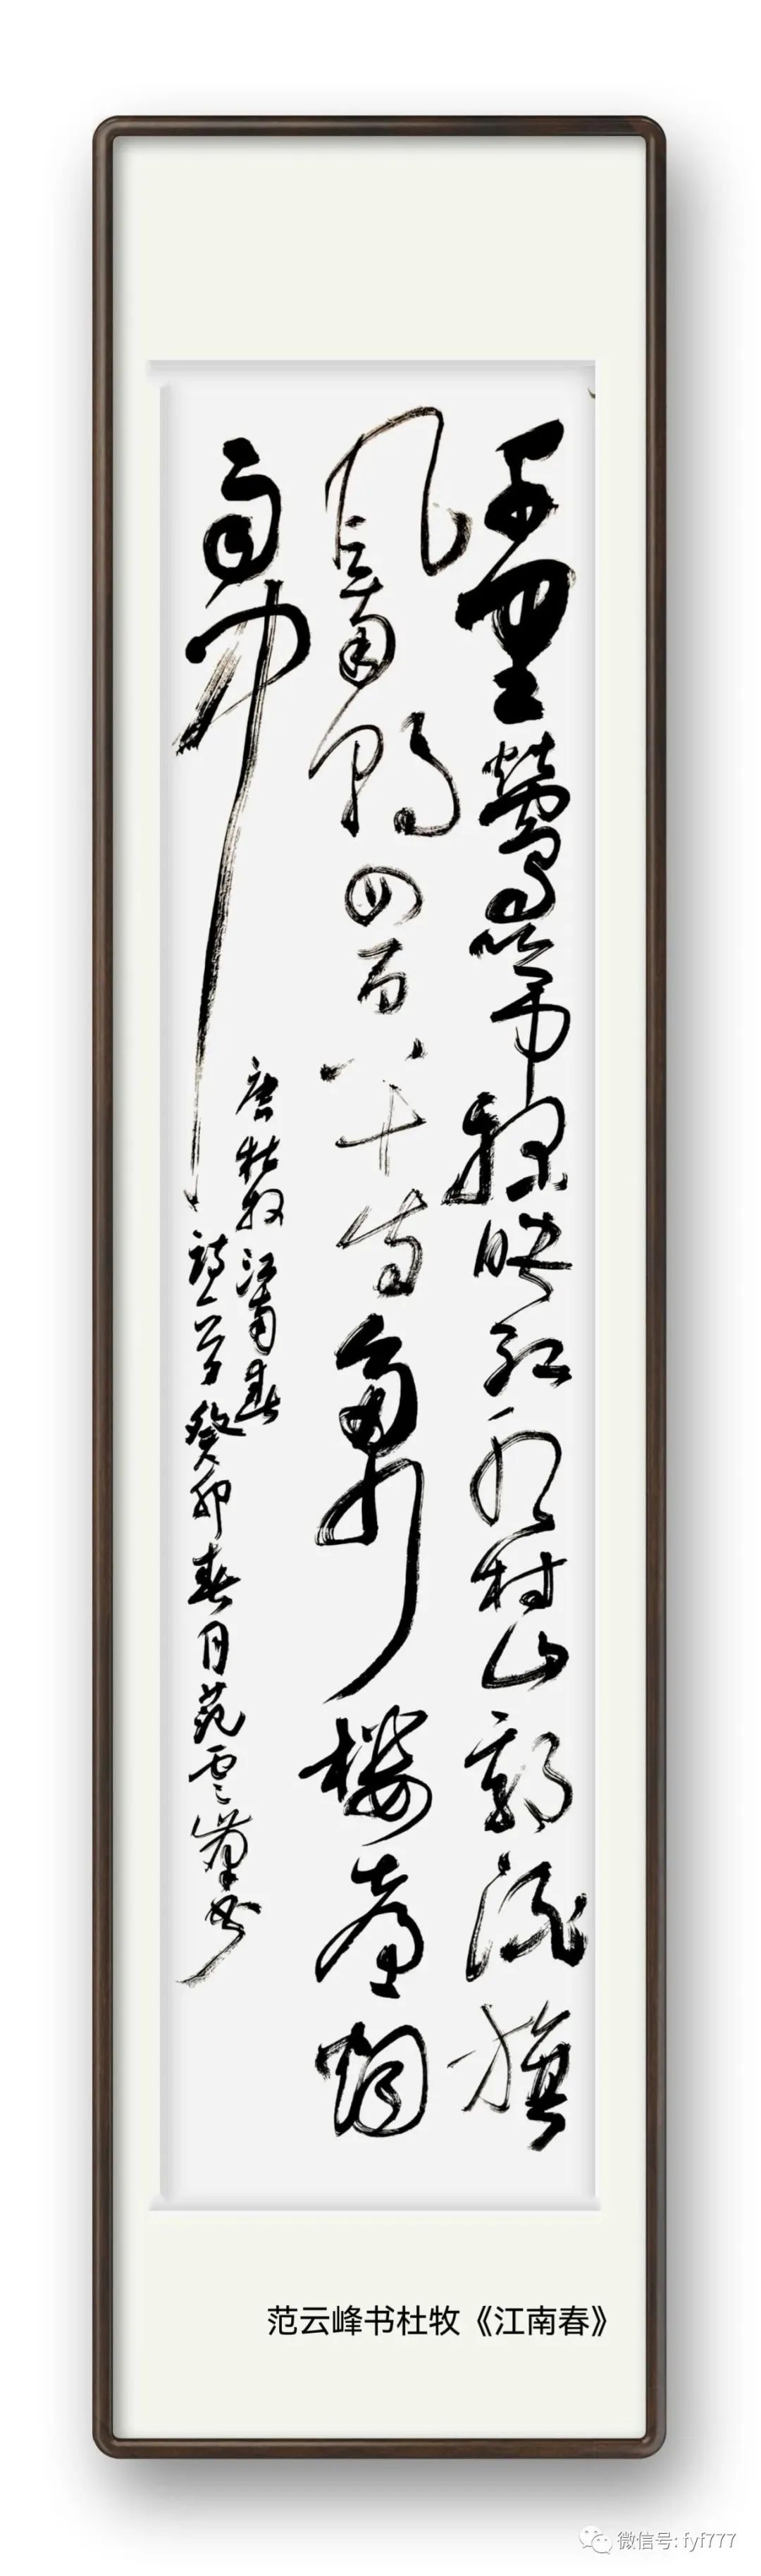 千里鶯啼綠映紅水村山郭酒旗
風南朝四百八十寺多少樓臺烟
雨中
唐杜牧江南春
詩一首癸卯春月范雲峯书
范云峰书杜牧《江南春》
微信号: fyf777